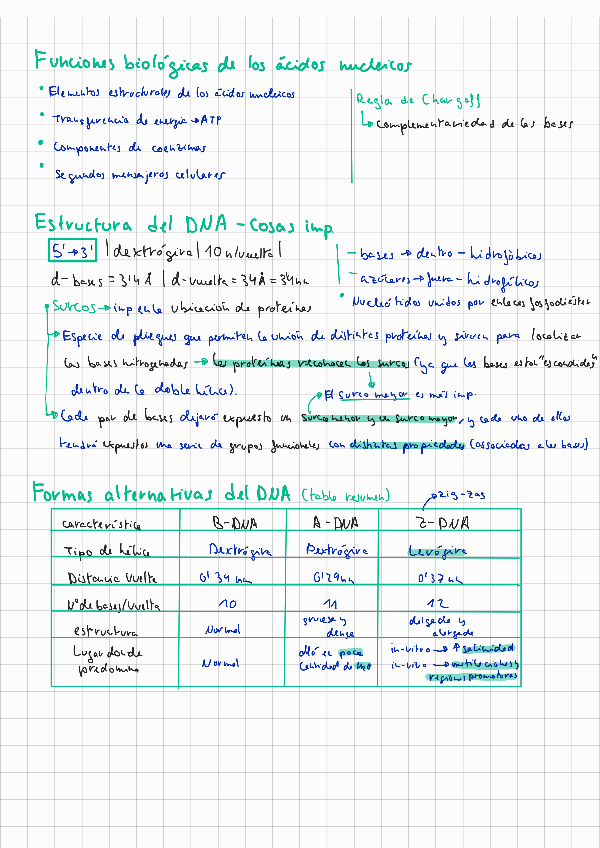 Funciones biológicas de los ácidos nucleicos
• Elementos estructurales de los ácidos nucleicos
• Transferencia de energía → ATP
• Componentes de coenzimas
• Segundos mensajeros celulares
Regla de Chargaff
↳ complementariedad de las bases
Estructura del DNA - Cosas imp.
5' → 3' | dextrógira | 10 n/vuelta |
d-bases = 3'4 Å | d-vuelta = 34 Å = 3'4 nm
- bases → dentro - hidrofóbicos
- azúcares → fuera - hidrofílicos
• Nucleótidos unidos por enlaces fosfodiéster
• Surcos → imp en la ubicación de proteínas
→ Especie de pliegues que permiten la unión de distintas proteínas y sirven para localizar
las bases nitrogenadas → las proteínas reconocen los surcos (ya que las bases están "escondidas"
dentro de la doble hélice).
→ El surco mayor es más imp.
→ Cada par de bases dejará expuesto un surco menor y un surco mayor, y cada uno de ellos
tendrá expuestos una serie de grupos funcionales con distintas propiedades (asociadas a las bases)
Formas alternativas del DNA (tabla resumen)
→ zig-zag
característica B-DNA A-DNA Z-DNA
Tipo de hélice Dextrógira Dextrógira Levógira
Distancia vuelta 0'34 nm 0'29 nm 0'37 nm
Nº de bases/vuelta 10 11 12
estructura Normal gruesa y densa delgada y alargada
Lugar donde predomina Normal allá en poca cantidad de H2O in-vitro → ↑ salinidad
in-vivo → metilaciones y
regiones promotoras